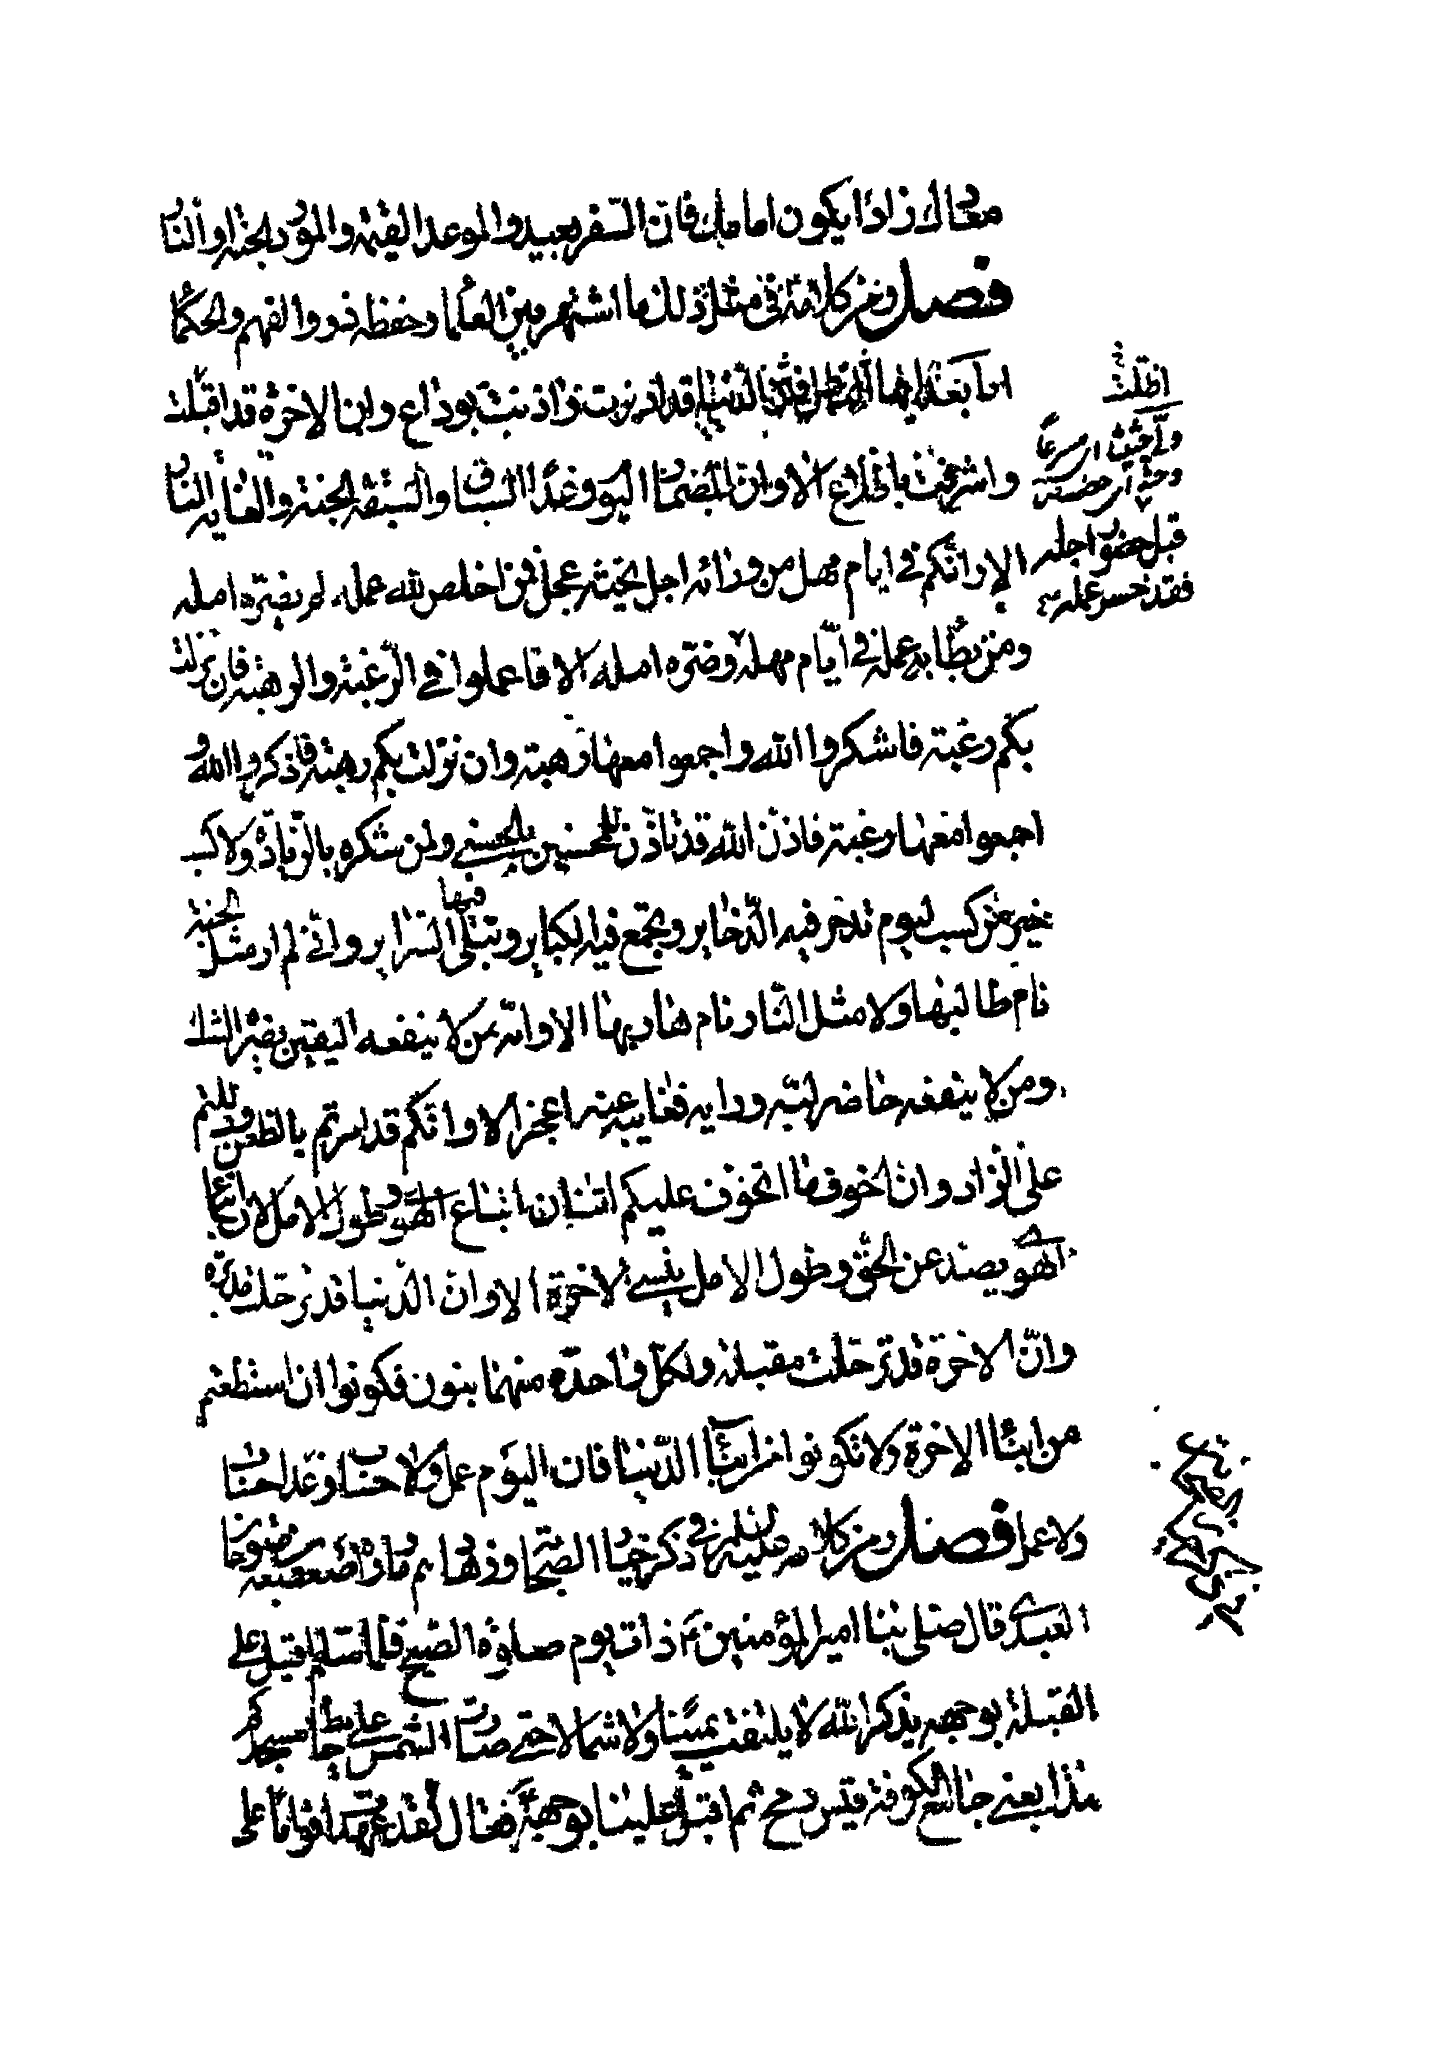 معادك زادا يكون امامك فان السفر بعيد والموعد القيمة والمورد الجنة او النار
فصل ومن كلامه في مثل ذلك ما اشتهر بين العلماء وحفظه ذووا الفهم والحكماء
اما بعد ايها الناس فان الدنيا قد ادبرت واذنت بوداع وان الاخرة قد اقبلت
واشرفت باطلاع الا وان المضمار اليوم وغدا السباق والسبقة الجنة والغاية النار
الا وانكم في ايام مهل من ورائه اجل يحثه عجل فمن اخلص لله عمله لم يضره امله
ومن بطأ به عمله في ايام مهله وضره امله الا فاعملوا في الرغبة والرهبة فان نزلت
بكم رغبة فاشكروا الله واجمعوا معها رهبة وان نزلت بكم رهبة فاذكروا الله و
اجمعوا معها رغبة فان الله قد تاذن للمحسنين بالحسنى ولمن شكره بالزيادة ولا كسب
خير من كسب ليوم تدخر فيه الذخاير ويجمع فيه الكباير وتبلى فيها السراير واني لم ار مثل الجنة
نام طالبها ولا مثل النار نام هاربها الا وانه من لا ينفعه اليقين يضره الشك
ومن لا ينفعه حاضر لبه ورايه فغايبه عنه اعجز الا وانكم قد امرتم بالظعن ودللتم
على الزاد وان اخوف ما اتخوف عليكم اثنان اتباع الهوى وطول الامل لان اتباع
الهوى يصد عن الحق وطول الامل ينسي الاخرة الا وان الدنيا قد ترحلت مدبرة
وان الاخرة قد ترحلت مقبلة ولكل واحدة منهما بنون فكونوا ان استطعتم
من ابناء الاخرة ولا تكونوا من ابناء الدنيا فان اليوم عمل ولا حساب وغدا حساب
ولا عمل فصل ومن كلامه عليه السلام في ذكر خيار الصحابة وزهادهم ما رواه صعصعة بن صوحان
العبدي قال صلى بنا امير المؤمنين ع ذات يوم صلوة الصبح فلما سلم اقبل على
القبلة بوجهه يذكر الله لا يلتفت يمينا ولا شمالا حتى صارت الشمس على حايط مسجدكم
هذا يعني جامع الكوفة قيس رمح ثم اقبل علينا بوجهه فقال لقد عهدت اقواما على
اظلت
قبل حضور اجله
فقد خسر عمله